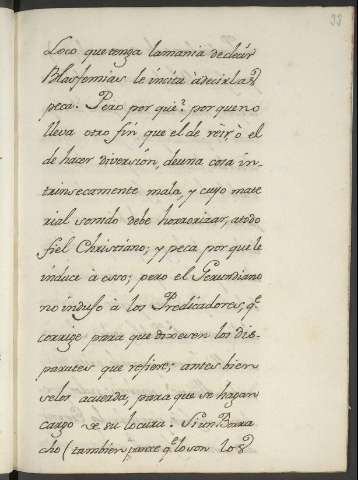 33
Loco que tenga la mania de decir
Blasfemias le incita à decirlas
peca. Pero por què? porque no
lleva otro fin que el de reir, ò el
de hacer diversion, de una cosa in-
trinsecamente mala, y cuyo mate
rial sonido debe horrorizar, atodo
fiel Christiano; y peca por que le
induce à esso; pero el Gerundiano
no indusſe à los Predicadores, qe.
corrige para que dixesen los dis-
parates que refiere; antes bien
selos acuerda, para que se hagan
cargo de su locura. Si un Borra
cho (tambien parece qe. lo son los